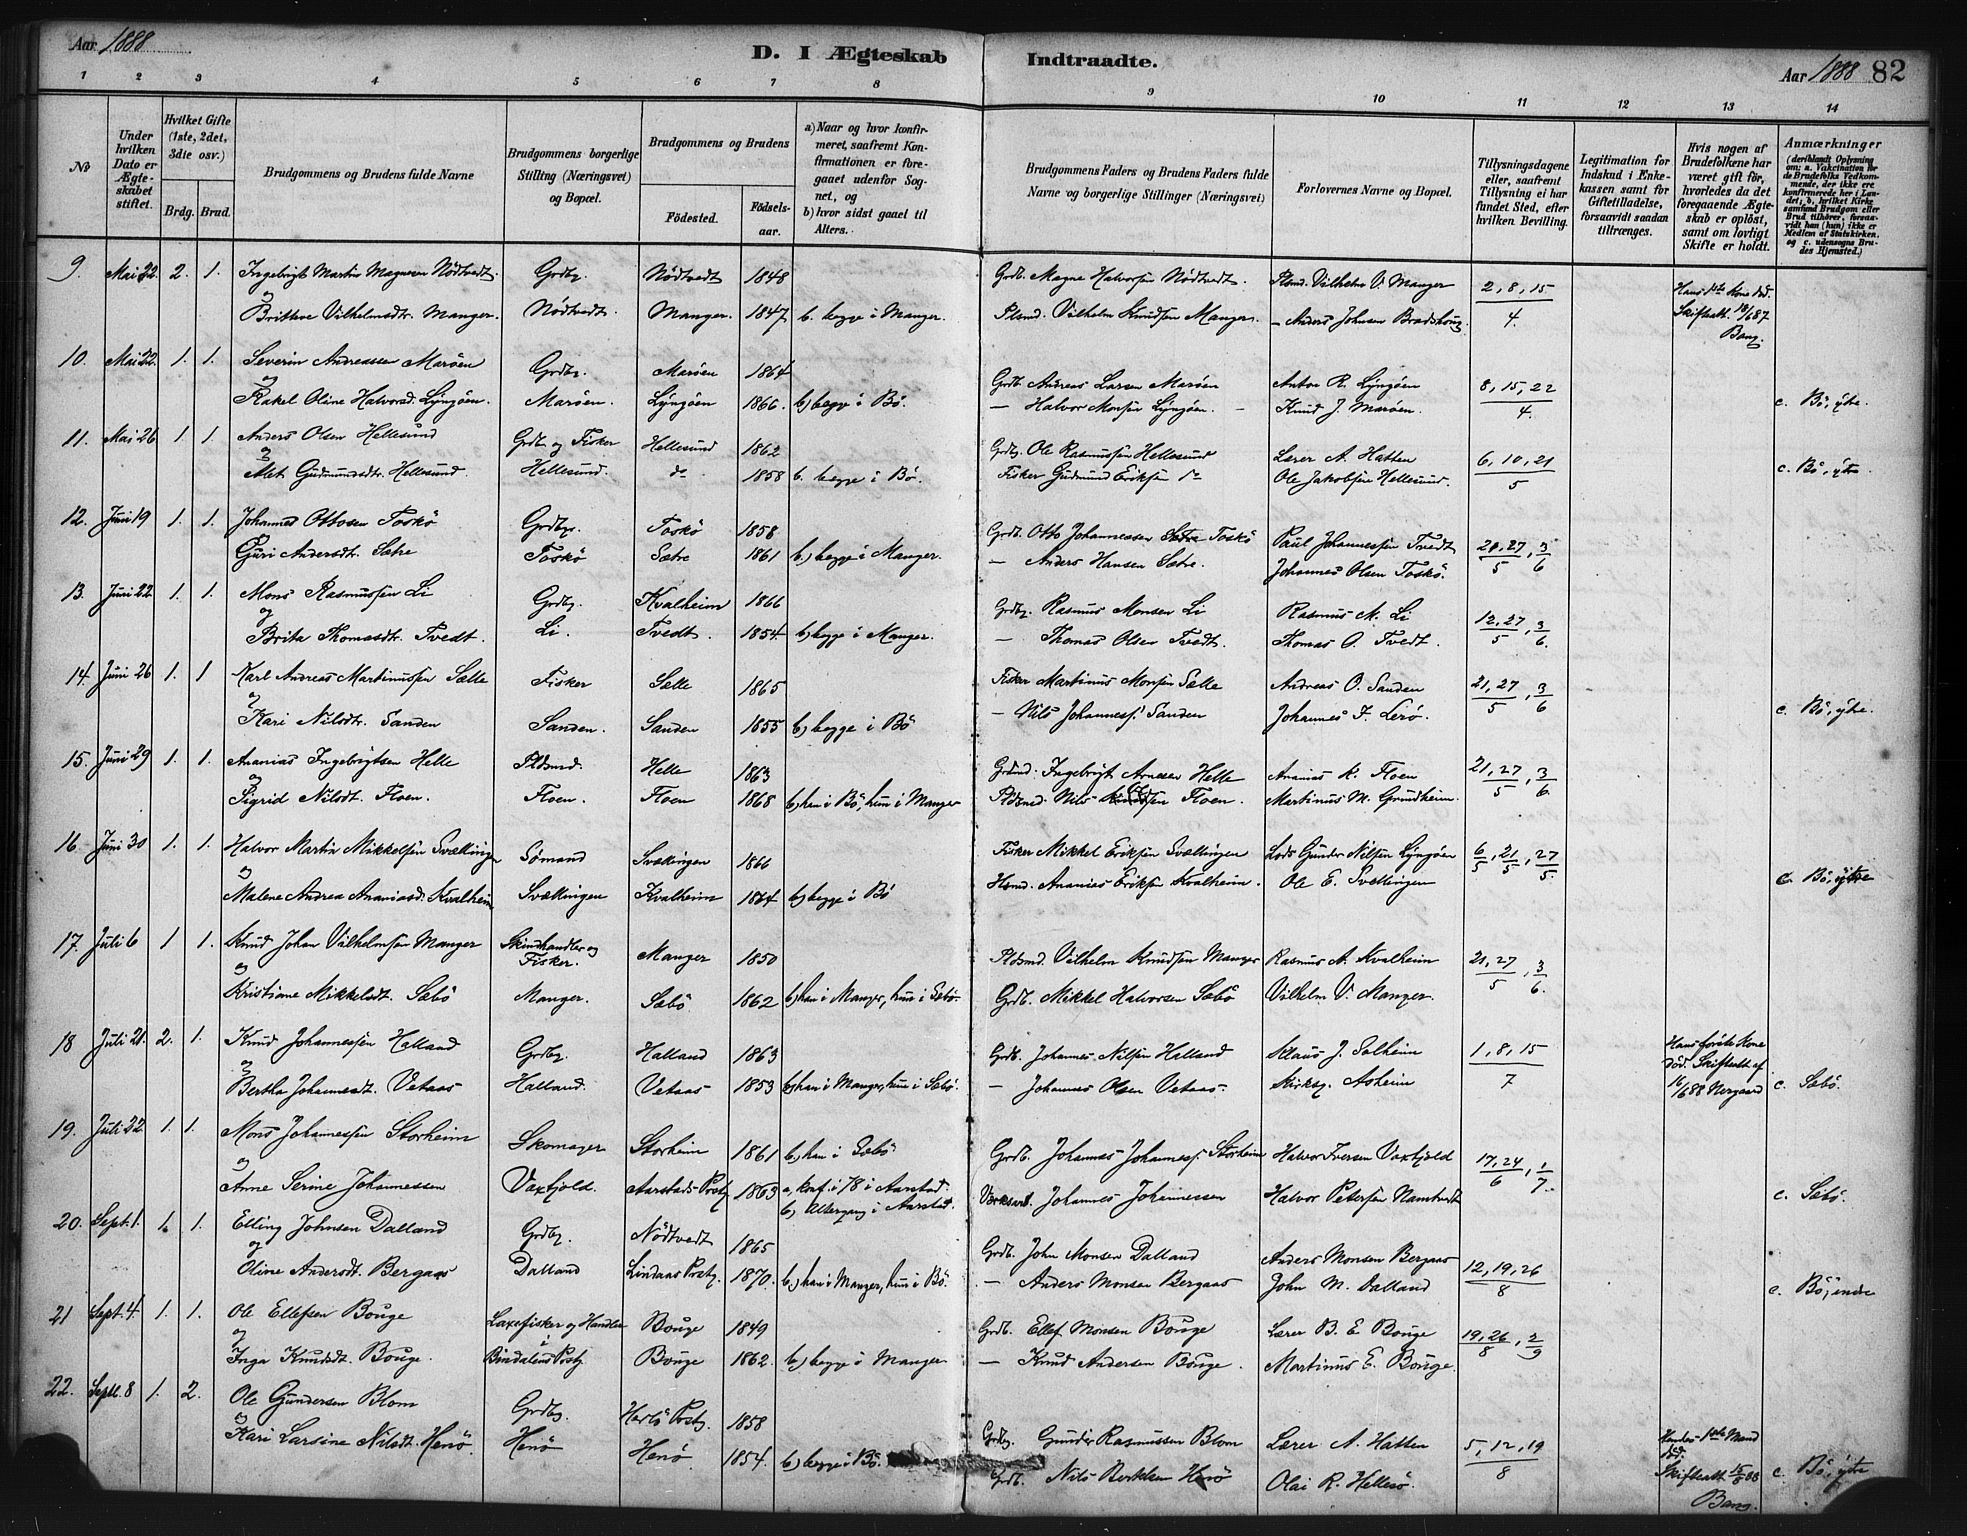 Aar 1888
D. I Ægteskab Indtraadte.
Aar 1888 82
1 2 3 4 5 6 7 8 9 10 11 12 13 14
No
Under hvilken Dato er Ægteskabet stiftet.
Hvilket Gifte (1ste, 2det, 3die osv.)
Brdg. Brud.
Brudgommens og Brudens fulde Navne
Brudgommens borgerlige Stilling (Næringsvei) og Bopæl.
Brudgommens og Brudens
Födested. Födselsaar.
a) Naar og hvor konfirmeret, saafremt Konfirmationen er foregaaet udenfor Sognet, og
b) hvor sidst gaaet til Alters.
Brudgommens Faders og Brudens Faders fulde Navne og borgerlige Stillinger (Næringsvei)
Forlovernes Navne og Bopæl.
Tillysningsdagene eller, saafremt Tillysning ei har fundet Sted, efter hvilken Bevilling.
Legitimation for Indskud i Enkekassen samt for Giftetilladelse, forsaavidt saadan tiltrænges.
Hvis nogen af Brudefolkene har været gift før, hvorledes da det foregaaende Ægteskab er oplöst, samt om lovligt Skifte er holdt.
Anmærkninger
(deriblandt Oplysning om: a. Vakcination for de Brudefolks Vedkommende, der ikke ere konfirmerede her i Landet; b. hvilket Kirkesamfund Brudgom eller Brud tilhörer, forsaavidt han (hun) ikke er Medlem af Statskirken, og c. udensogns Brudes Hjemsted.)
9. Mai 22. 2. 1. Ingebrigt Martin Magnesen Nödtvedt. Grdbg. Nödtvedt 1848 Grdb. Magne Halvorsen Nödtvedt. Plsmd. Vilhelm V. Manger 2, 8, 15 Hans 1ste Kone död.
og Britthve Vilhelmsdtr. Manger. Nödtvedt. Manger. 1847 b. begge i Manger. Plsmd. Vilhelm Knudsen Manger. — Anders Johnsen 4. Skifteatt. 18/6 87 Bang.
10. Mai 22. 1. 1. Severin Andreassen Maröen Grdbg. Maröen 1864 Grdb. Andreas Larsen Maröen Anton R. Lyngöen 8, 15, 22
og Rakel Oline Halvorsd. Lyngöen. Maröen. Lyngöen 1866. b) begge i Bö. — Halvor Monsen Lyngöen. Knud J. Maröen. 4. c. Bö, ytre.
11. Mai 26 1. 1. Anders Olsen Hellesund Grdb. og Fisker Hellesund 1862 Grdbg. Ole Rasmussen Hellesund Lærer A. Hatten 6, 10, 21
og Met Gudmundsdtr. Hellesund. Hellesund. do 1858 b. begge i Bö. Fisker Gudmund Eriksen do Ole Jakobsen Hellesund. 5 c. Bö, ytre
12. Juni 19 1. 1. Johannes Ottosen Toskö Grdbg. Toskö 1858 Grdb. Otto Johannessen Toskö Paul Johannessen Tvedt 21, 27, 3
Guri Andersdt. Sætre Toskö Sætre 1861 b) begge i Manger. — Anders Hansen Sætre. Johannes Olsen Toskö. 5 6
13. Juni 22 1. 1. Mons Rasmussen Li Grdbg. Kvalheim 1866 Grdbg. Rasmus Monsen Li Rasmus M. Li 12, 27, 3
og Brita Thomasdtr. Tvedt. Li. Tvedt. 1854 b) begge i Manger. — Thomas Olsen Tvedt. Thomas O. Tvedt 5 6.
14. Juni 26 1. 1 Karl Andreas Martinussen Sælle Fisker Sælle 1865 Fisker Martinus Monsen Sælle Andreas O. Sanden 21, 27, 3
og Kari Nilsdtr. Sanden Sanden. Sanden 1855 b) begge i Bö — Nils Johanness. Sanden Johannes F. Lerö. 5 6 c. Bö, ytre.
15. Juni 29 1. 1. Ananias Ingebrigtsen Helle Pldsmd. Helle 1863 Ingebrigt Arnesen Helle Ananias K. Floen 21, 27, 3
og Sigrid Nilsdt. Floen. Floen. Floen 1868 b) han i Bö, hun i Manger Pldsmd. Nils Floen. Martinus M. Grundheim. 5 6.
16. Juni 30 1. 1. Halvor Martin Mikkelsen Svællingen Sömand Svællingen 1866 Fisker Mikkel Eriksen Svællingen Lods Gunder Nilsen Lyngöen 6/5, 21/5, 27/5.
og Malene Andrea Ananiasd. Kvalheim Svællingen Kvalheim 1864 b) begge i Bö Hsmd. Ananias Eriksen Kvalheim. Ole E. Svellingen c. Bö, ytre
17. Juli 6 1 1. Knud Johan Vilhelmsen Manger Skindhandler og Fisker. Manger 1850 Pldsmd. Vilhelm Knudsen Manger Rasmus A. Kvalheim 21, 27, 3
og Kristiane Mikkelsdt. Sæbö Manger. Sæbö 1862 b) han i Manger, hun i Sæbö. Grdb. Mikkel Halvorsen Sæbö Vilhelm V. Manger. 5 6.
18 Juli 21. 2. 1. Knud Johannessen Halland Grdbg. Halland 1863 Grdb. Johannes Nilsen Halland Klaus J. Solheim 1, 8, 15 Hans förste Kone död. Skifteatt af
og Bertha Johannesdt. Vetaas Halland. Vetaas 1853 b) han i Manger, hun i Sæbö. — Johannes Olsen Vetaas. Kirksg. Asheim 7 16/6 88 Nergaard c. Sæbö.
19. Juli 22 1. 1. Mons Johannessen Storheim Skomager Storheim 1861 b) han i Sæbö Grdb. Johannes Johanness. Storheim Halvor Iversen Vaxtjold 17, 24, 1
og Anne Serine Johannessen Vaxtjold. Aarstads Prstg. 1863 a, konf. i 78 i Aarstad. b) Altergang i Aarstad. Værksarb. Johannes Johannessen Halvor Petersen Namtvedt 6 7. c. Sæbö.
20. Sept. 1. 1. Elling Johnsen Dalland Grdbg. Nödtvedt 1865 Grdb. John Monsen Dalland Anders Monsen Bergaas 12, 19, 26
og Oline Andersdt. Bergaas Dalland Lindaas Prstg. 1870. b) han i Manger, hun i Bö. — Anders Monsen Bergaas John M. Dalland 8 c. Bö, indre
21 Sept. 4. 1. 1. Ole Ellefsen Bouge Laxefisker og Handler i Bouge 1849 Grdb. Ellef Monsen Bouge Lærer B. E. Bouge 19, 26, 2
og Inga Knudsdt. Bouge. Bindalens Prstg. Bouge 1862. b) begge i Manger — Knud Andersen Bouge. Martinus E. Bouge. 8 9
22. Sept. 8 1. 2. Ole Gundersen Blom Grdbg. Herlö Prstg. 1858 Grdbg. Gunder Rasmussen Blom Lærer A. Hatten 5, 12, 19 Hendes 1ste Mand död.
og Kari Larsine Nilsdt. Henö. Henö Henö 1854. b) begge i Bö. Grdb. Nils Henö Olai R. Hellesö. 8 Skifteatt. 88 Bang. c. Bö, ytre